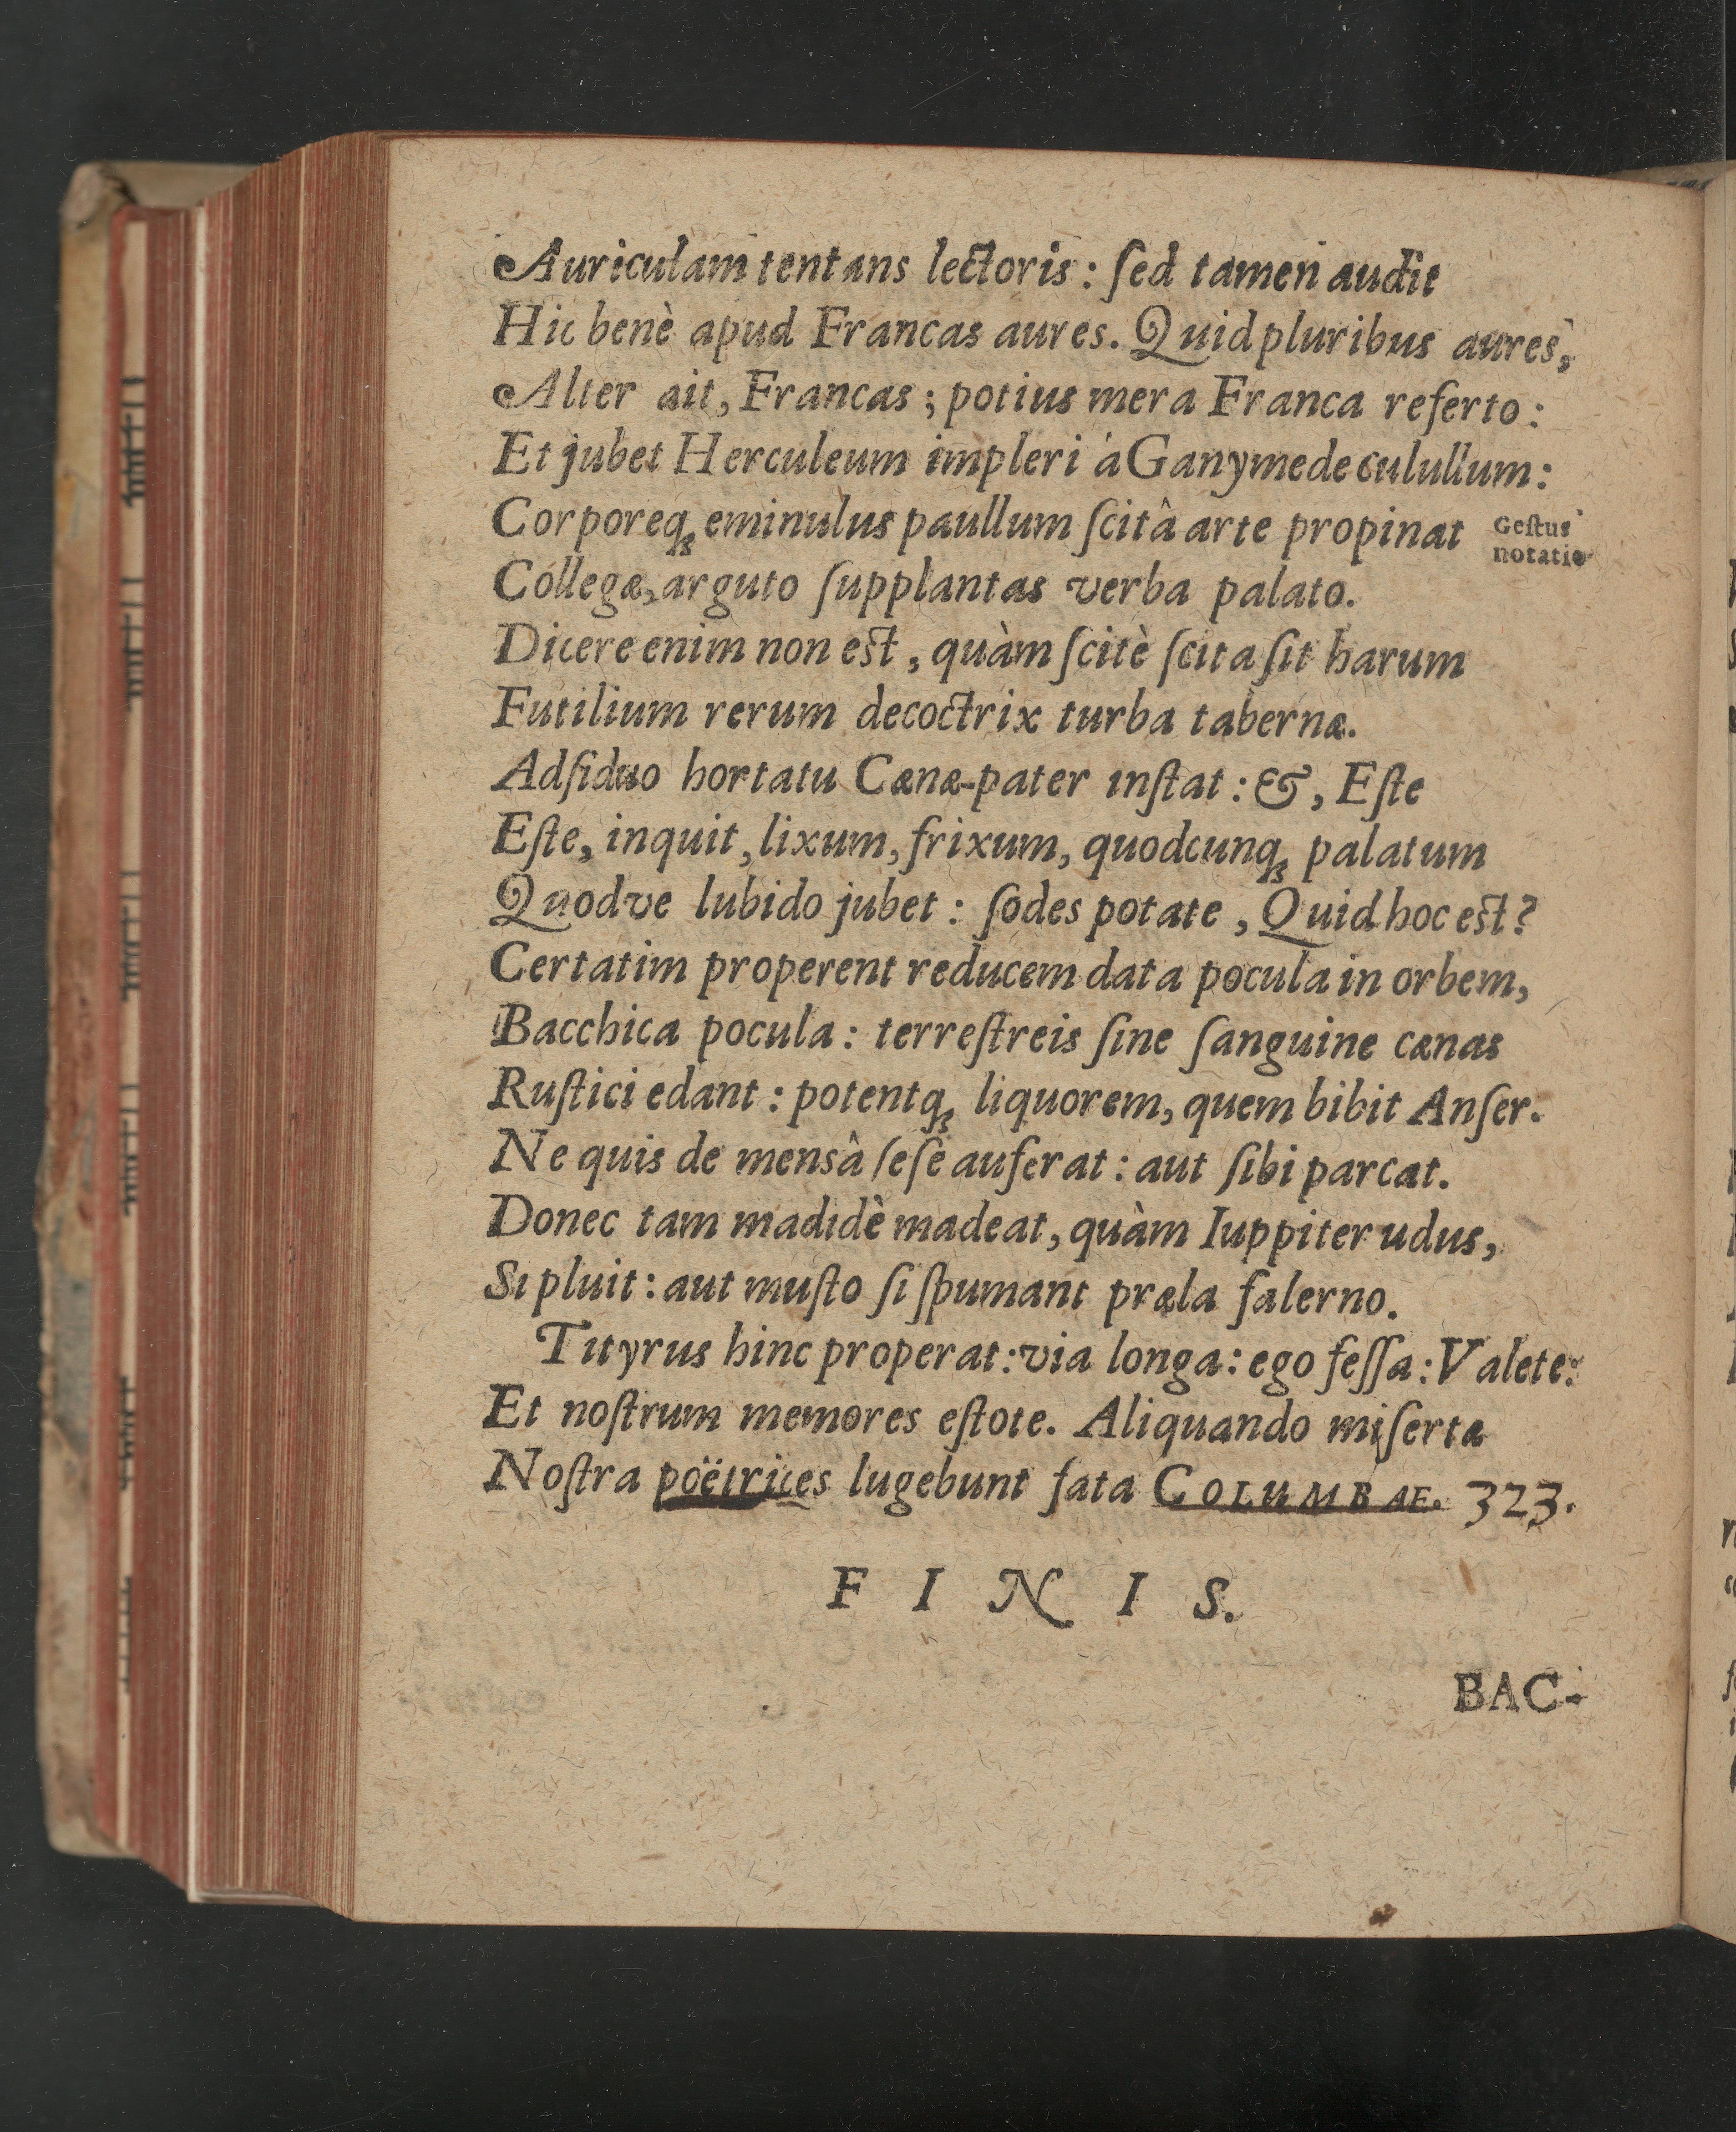 Auriculam tentans lectoris: ſed tamen audit
Hic benè apud Francas aures. Quid pluribus aures,
Alter ait, Francas; potius mera Franca referto:
Et jubet Herculeum impleri à Ganymede culullum:
Corporeq́ꝫ eminulus paullum ſcitâ arte propinat
Geſtus notatio
Collegæ, arguto ſupplantas verba palato.
Dicere enim non eſt, quàm ſcitè ſcita ſit harum
Futilium rerum decoctrix turba tabernæ.
Adſiduo hortatu Cænæ-pater inſtat: &, Eſte
Eſte, inquit, lixum, frixum, quodcunqꝫ palatum
Quodve lubido jubet: ſodes potate, Quid hoc eſt?
Certatim properent reducem data pocula in orbem,
Bacchica pocula: terreſtreis ſine ſanguine cænas
Ruſtici edant: potentqꝫ liquorem, quem bibit Anſer.
Ne quis de mensâ ſeſe auferat: aut ſibi parcat.
Donec tam madidè madeat, quàm Iuppiter udus,
Si pluit: aut muſto ſi ſpumant præla falerno.
Tityrus hinc properat: via longa: ego feſſa: Valete:
Et noſtrum memores eſtote. Aliquando miſertæ
Noſtra poëtrices lugebunt fata COLUMBAE. 323.
FINIS.
BAC-